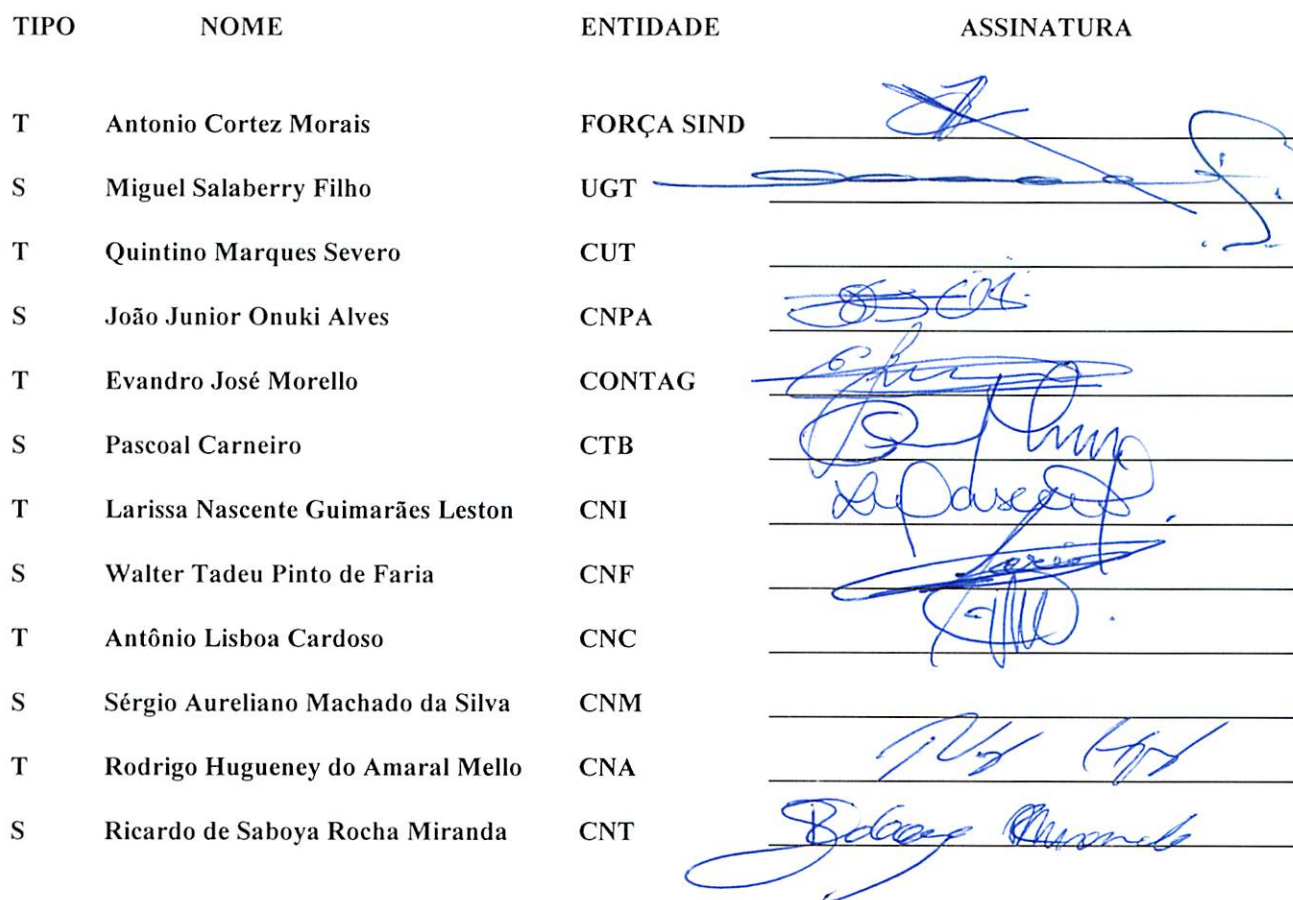 TIPO NOME ENTIDADE ASSINATURA
T Antonio Cortez Morais FORÇA SIND
S Miguel Salaberry Filho UGT
T Quintino Marques Severo CUT
S João Junior Onuki Alves CNPA
T Evandro José Morello CONTAG
S Pascoal Carneiro CTB
T Larissa Nascente Guimarães Leston CNI
S Walter Tadeu Pinto de Faria CNF
T Antônio Lisboa Cardoso CNC
S Sérgio Aureliano Machado da Silva CNM
T Rodrigo Hugueney do Amaral Mello CNA
S Ricardo de Saboya Rocha Miranda CNT